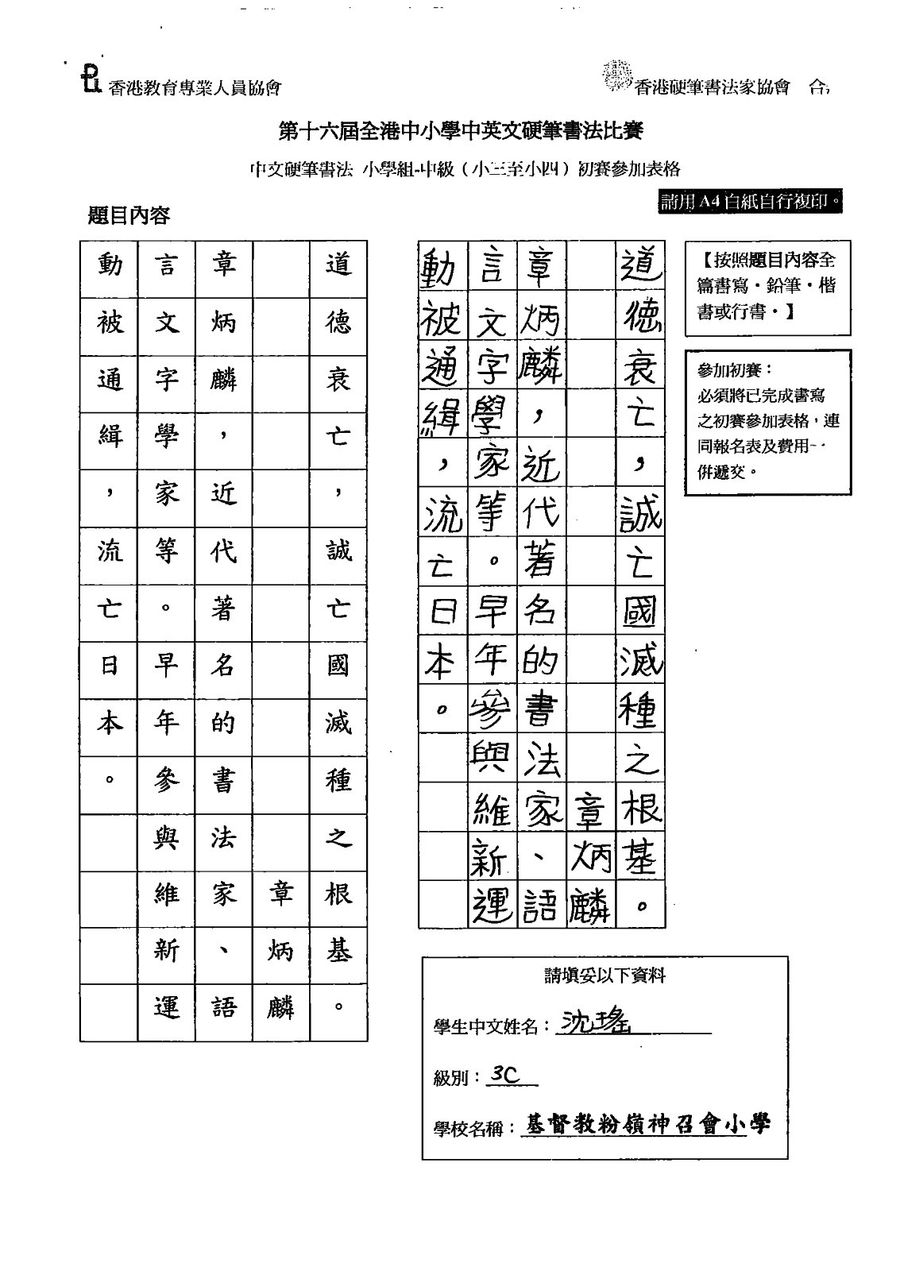 香港教育專業人員協會
香港硬筆書法家協會 合
第十六屆全港中小學中英文硬筆書法比賽
中文硬筆書法 小學組-中級（小三至小四）初賽參加表格
請用 A4 白紙自行複印。
題目內容
道德衰亡，誠亡國滅種之根基。
章炳麟
章炳麟，近代著名的書法家、語
言文字學家等。早年參與維新運
動被通緝，流亡日本。
道德衰亡，誠亡國滅種之根基。
章炳麟
章炳麟，近代著名的書法家、語
言文字學家等。早年參與維新運
動被通緝，流亡日本。
【按照題目內容全
篇書寫‧鉛筆‧楷
書或行書‧】
參加初賽：
必須將已完成書寫
之初賽參加表格，連
同報名表及費用一
併遞交。
請填妥以下資料
學生中文姓名：沈瑤
級別：3C
學校名稱：基督教粉嶺神召會小學